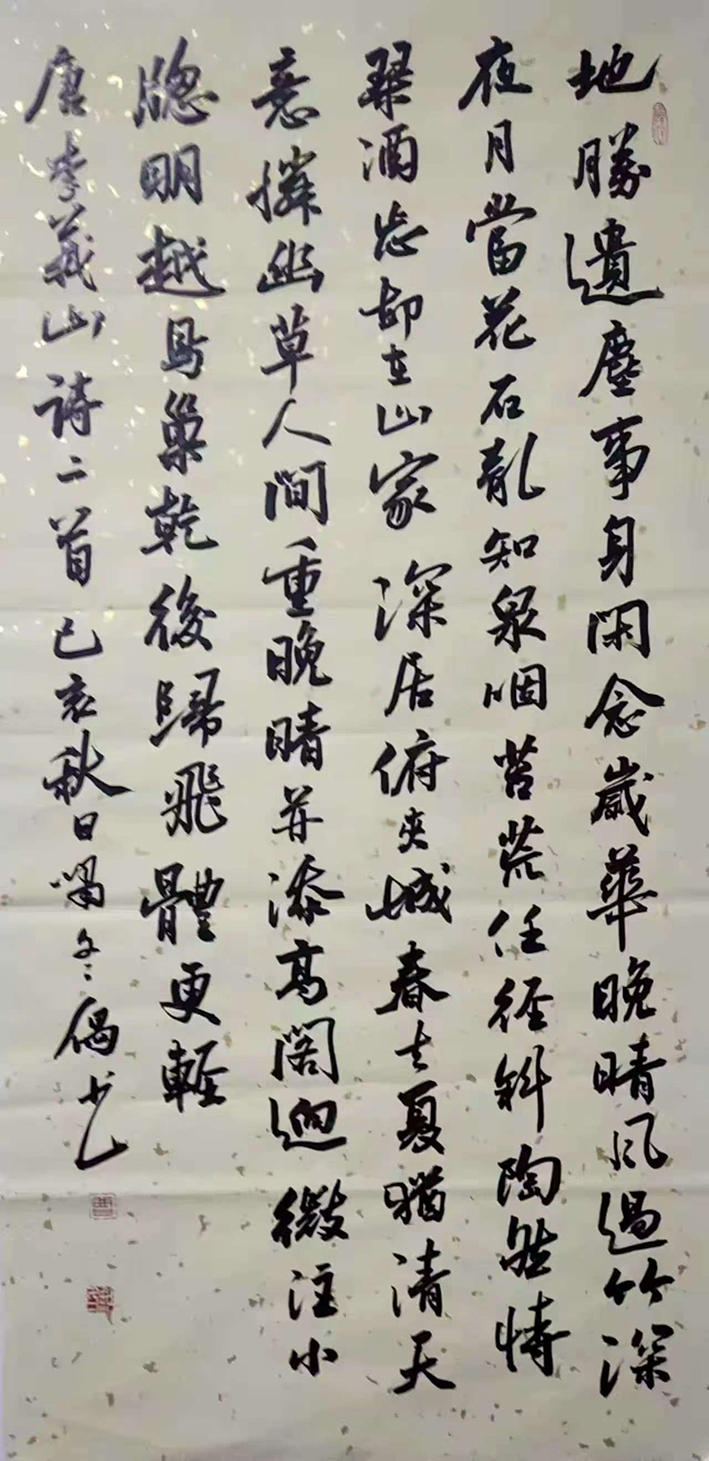 地勝遺塵事身閑念歲華晚晴風過竹深
夜月當花石亂知泉咽苔荒任徑斜陶然恃
琴酒忘卻在山家 深居俯夾城春去夏猶清天
意憐幽草人間重晚晴并添高閣迥微注小
牕明越鳥巢乾後歸飛體更輕
唐李義山詩二首己亥秋日冬偶書